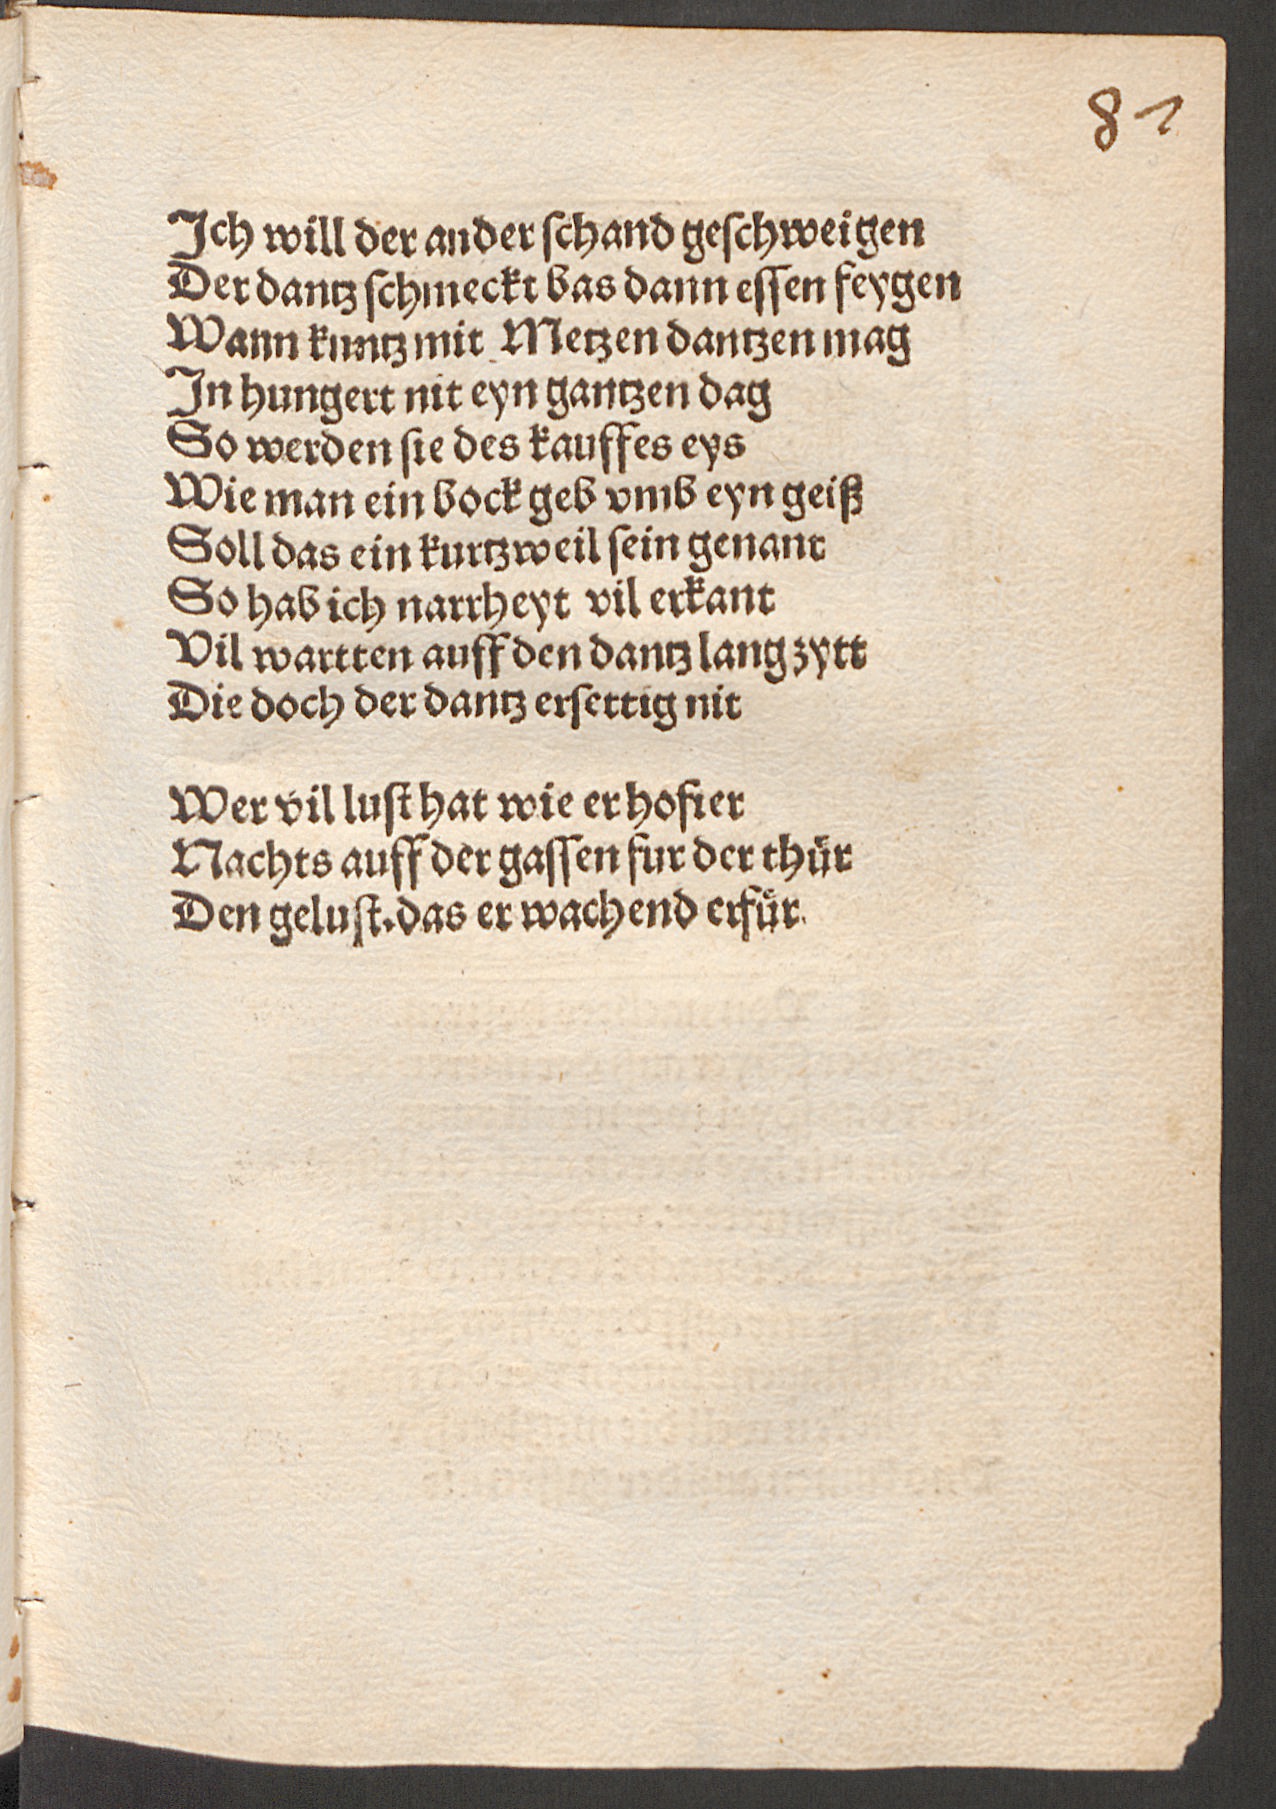 81
Jch will der ander ſchand geſchweigen
Der dantz ſchmeckt bas dann eſſen feygen
Wann kuntz mit Metzen dantzen mag
Jn hungert nit eyn gantzen dag
So werden ſie des kauffes eys
Wie man ein bock geb vmb eyn geiß
Soll das ein kurtzweil ſein genant
So hab ich narrheyt vil erkant
Vil wartten auff den dantz lang zytt
Die doch der dantz erſettig nit
Wer vil luſt hat wie er hofier
Nachts auff der gaſſen fur der thuͤr
Den geluſt. das er wachend erfuͤr.